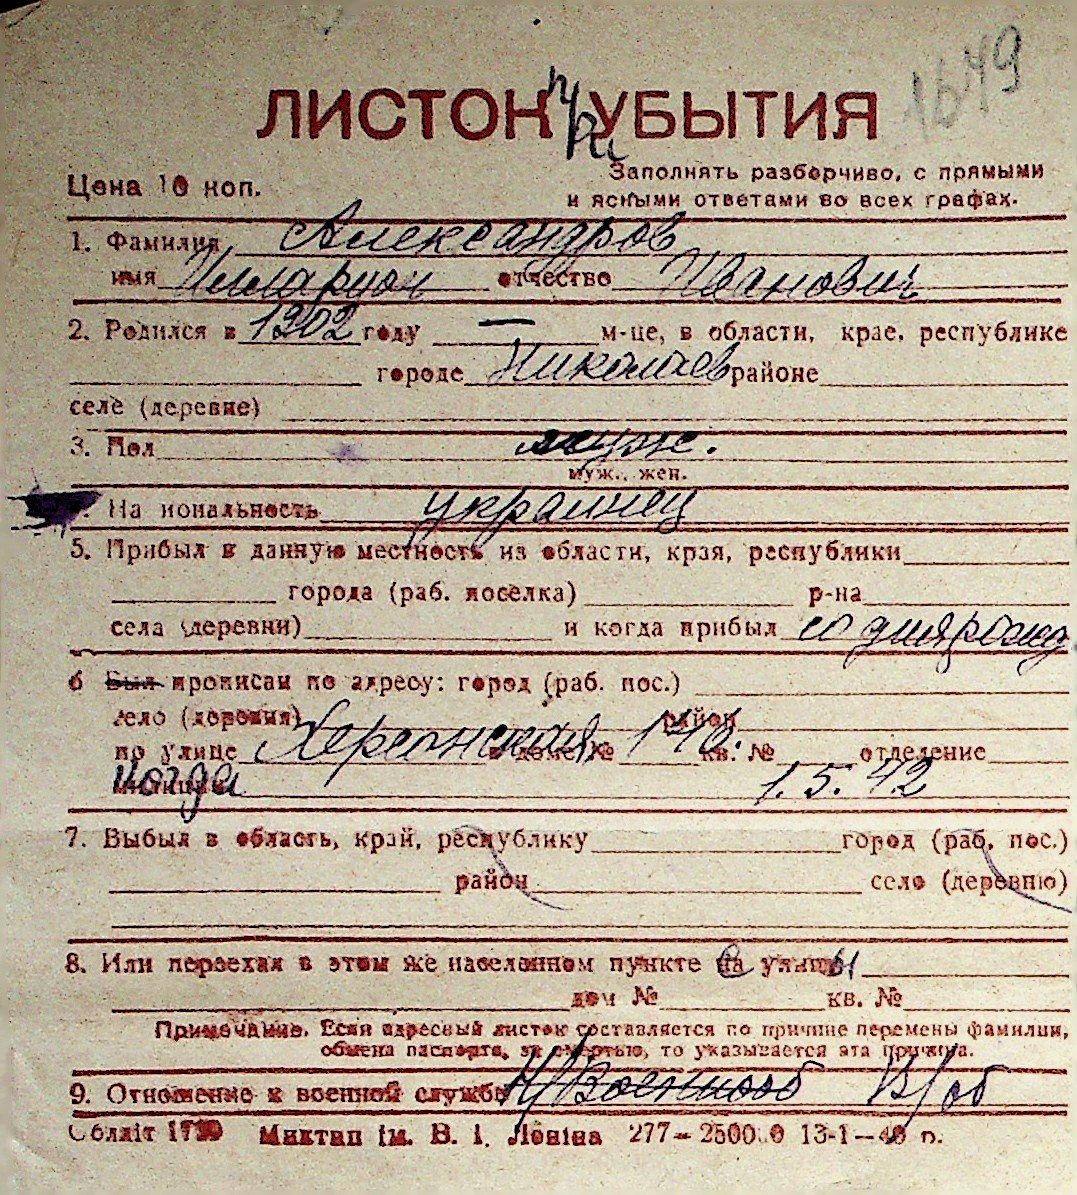 1649
ЛИСТОК при УБЫТИЯ
Цена 10 коп.
Заполнять разборчиво, с прямыми
и ясными ответами во всех графах.
1. Фамилия Александров
имя Илларион отчество Иванович
2. Родился в 1902 году — м-це, в области, крае, республике
городе Николаев районе
селе (деревне)
3. Пол муж.
муж., жен.
На иональность украинец
5. Прибыл в данную местность из области, края, республики
города (раб. поселка) р-на
села (деревни) и когда прибыл со дня рожд
6 Был прописан по адресу: город (раб. пос.)
село (деревня) район
по улице Херсонская в доме № 140. кв. № отделение
милиции когда 1.5.42
7. Выбыл в область, край, республику город (раб. пос.)
район село (деревню)
8. Или переехал в этом же населенном пункте с улицы
дом № кв. №
Примечание. Если адресный листок составляется по причине перемены фамилии,
обмена паспорта, за смертью, то указывается эта причина.
9. Отношение к военной службе Н/Военнооб В/об
Обліт Миктип ім. В. І. Леніна 277— 13-1—40 р.